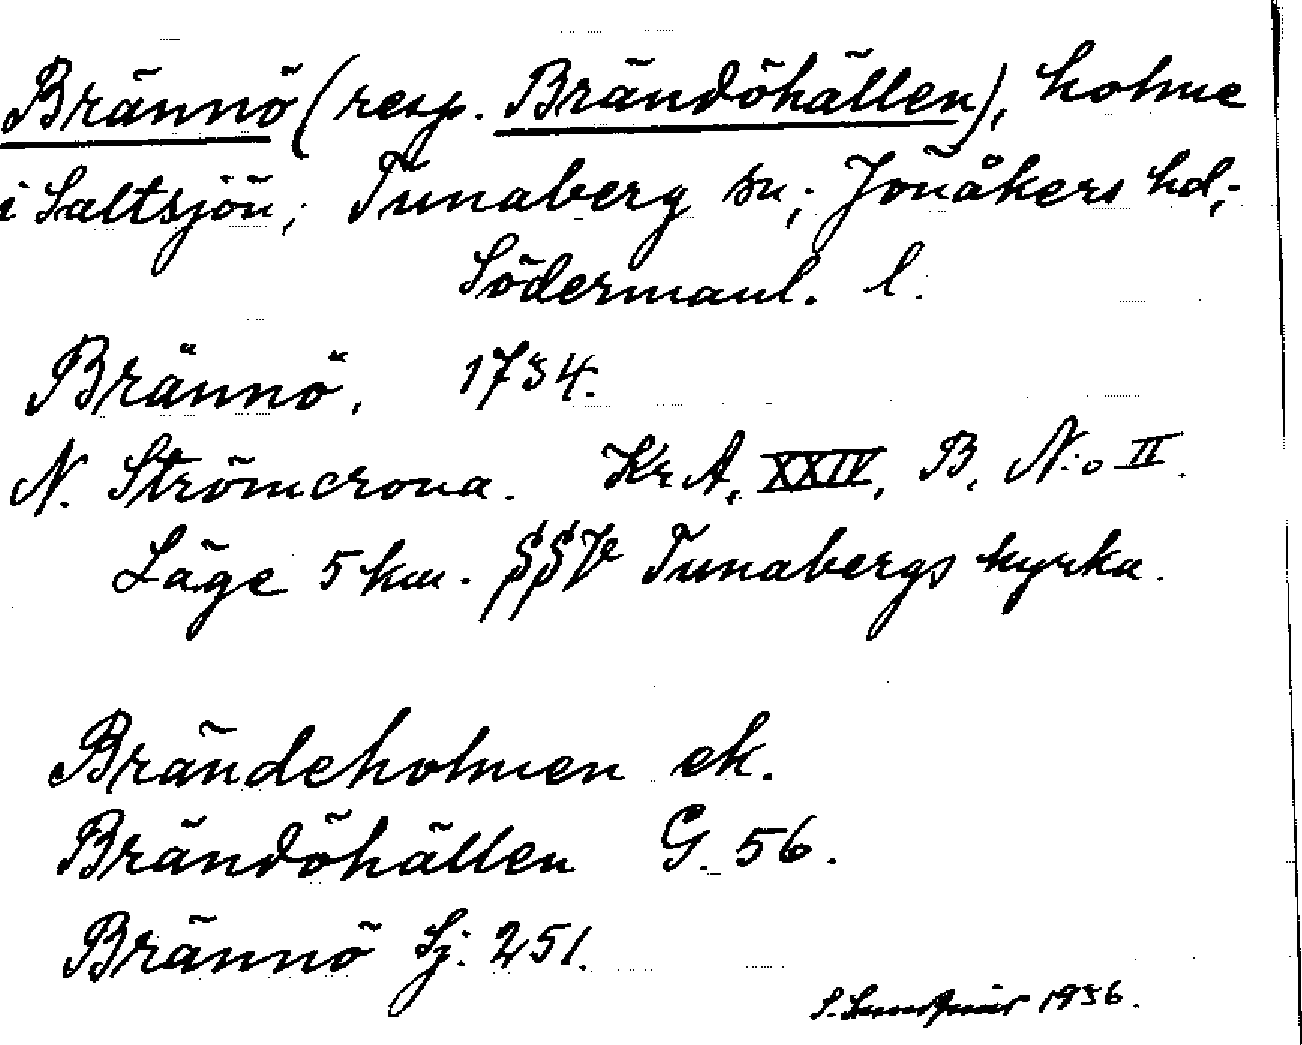 Brännö (resp. Brändöhällen), holme
i Saltsjön; Tunaberg sn; Jönåkers hd;
Södermanl. l.
Brännö, 1734.
N. Strömcrona. Kr A, XXIV, B, N:o II.
Läge 5 km. SSV Tunabergs kyrka.
Brändeholmen ek.
Brändöhällen G. 56.
Brännö Sj. 251.
S. 1936.